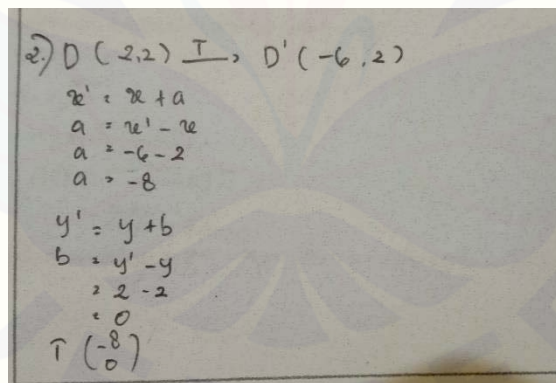 2.) D (2,2) T→ D' (-6,2)
x' = x + a
a = x' - x
a = -6 - 2
a = -8
y' = y + b
b = y' - y
= 2 - 2
= 0
T (-8
0)